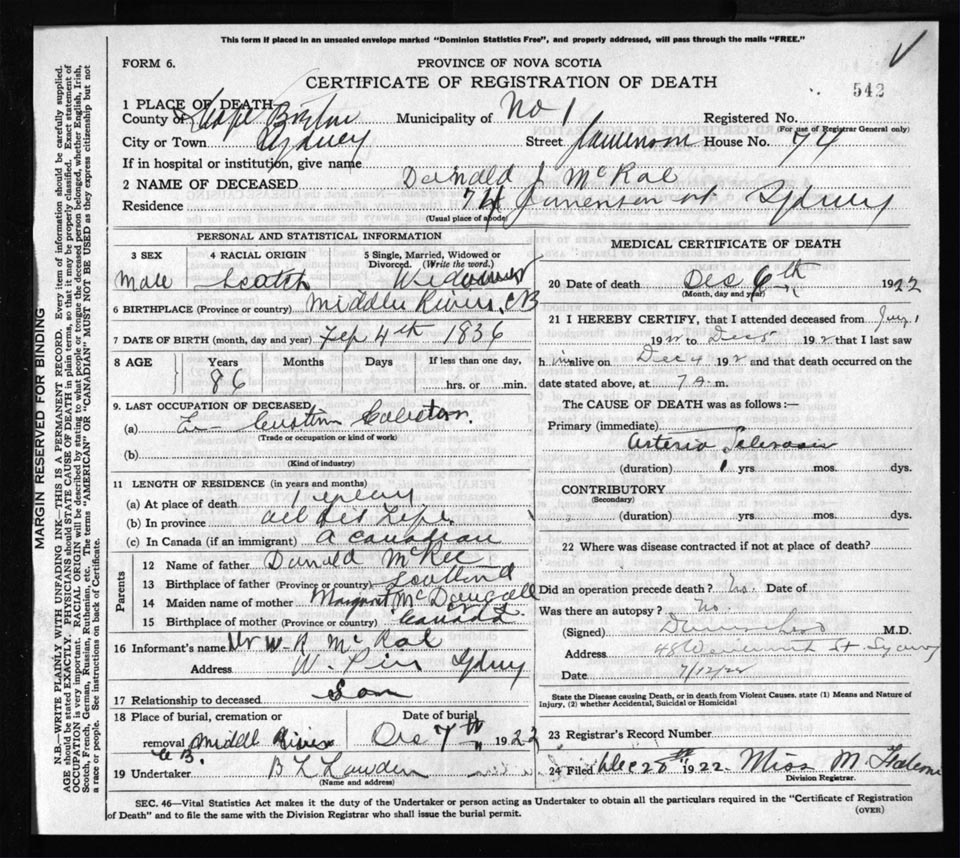 This form if placed in an unsealed envelope marked "Dominion Statistics Free", and properly addressed, will pass through the mails "FREE."
FORM 6.
PROVINCE OF NOVA SCOTIA
CERTIFICATE OF REGISTRATION OF DEATH
542
1 PLACE OF DEATH
County of Cape Breton Municipality of No 1 Registered No.
(For use of Registrar General only)
City or Town Sydney Street House No. 74
If in hospital or institution, give name
2 NAME OF DECEASED Donald J McRae
Residence 74 st Sydney
(Usual place of abode)
PERSONAL AND STATISTICAL INFORMATION
3 SEX Male
4 RACIAL ORIGIN Scotch
5 Single, Married, Widowed or Divorced. (Write the word.) Widower
6 BIRTHPLACE (Province or country) Middle River, CB
7 DATE OF BIRTH (month, day and year) Feb 4th 1836
8 AGE Years Months Days If less than one day,
86 hrs. or min.
9. LAST OCCUPATION OF DECEASED
(a)
(Trade or occupation or kind of work)
(b)
(Kind of industry)
11 LENGTH OF RESIDENCE (in years and months)
(a) At place of death
(b) In province all his Life
(c) In Canada (if an immigrant) a Canadian
Parents
12 Name of father Donald McRae
13 Birthplace of father (Province or country) Scotland
14 Maiden name of mother Margaret McDougall
15 Birthplace of mother (Province or country) Canada
16 Informant's name W R McRae
Address Sydney
17 Relationship to deceased Son
18 Place of burial, cremation or removal Middle River
C B.
Date of burial Dec 7th 1922
19 Undertaker
(Name and address)
MEDICAL CERTIFICATE OF DEATH
20 Date of death Dec 6th 1922
(Month, day and year)
21 I HEREBY CERTIFY, that I attended deceased from
192 to Dec 5 192 that I last saw
h im alive on Dec 4 192 and that death occurred on the
date stated above, at 7 A. m.
The CAUSE OF DEATH was as follows:—
Primary (immediate)
Arterio Sclerosis
(duration) yrs. mos. dys.
CONTRIBUTORY
(Secondary)
(duration) yrs. mos. dys.
22 Where was disease contracted if not at place of death?
Did an operation precede death? No. Date of
Was there an autopsy? No.
(Signed) M.D.
Address 48 St. Sydney
Date 7/12/22
State the Disease causing Death, or in death from Violent Causes, state (1) Means and Nature of
Injury, (2) whether Accidental, Suicidal or Homicidal
23 Registrar's Record Number
24 Filed Dec 28th 1922. Miss M
Division Registrar.
SEC. 46—Vital Statistics Act makes it the duty of the Undertaker or person acting as Undertaker to obtain all the particulars required in the "Certificate of Registration
of Death" and to file the same with the Division Registrar who shall issue the burial permit.
(OVER)
MARGIN RESERVED FOR BINDING
N.B.—WRITE PLAINLY WITH UNFADING INK—THIS IS A PERMANENT RECORD. Every item of information should be carefully supplied.
AGE should be stated EXACTLY. PHYSICIANS should STATE CAUSE OF DEATH in plain terms, so that it may be properly classified. Exact statement of
OCCUPATION is very important. RACIAL ORIGIN will be described by stating to what people or tongue the deceased person belonged, whether English, Irish,
Scotch, French, German, Russian, Ruthenian, etc. The terms "AMERICAN" OR "CANADIAN" MUST NOT BE USED as they express citizenship but not
a race or people. See instructions on back of Certificate.